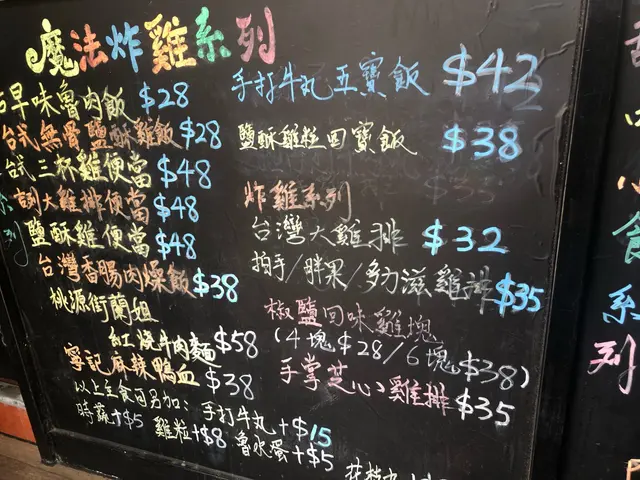 魔法炸雞系列
古早味魯肉飯 $28
台式無骨鹽酥雞飯 $28
台式三杯雞便當 $48
大雞排便當 $48
鹽酥雞便當 $48
台灣香腸肉燥飯 $38
桃源街蘭姐
紅燒牛肉麵 $58
寧記麻辣鴨血 $38
以上主食另加：手打牛丸+$15
時蔬+$5 雞粒+$8 魯水蛋+$5
手打牛丸五寶飯 $42
鹽酥雞粒四寶飯 $38
炸雞系列
台灣大雞排 $32
拍手/胖果/多力滋雞排 $35
椒鹽回味雞塊
(4塊$28/6塊$38)
手掌芝心雞排 $35
食
系
列